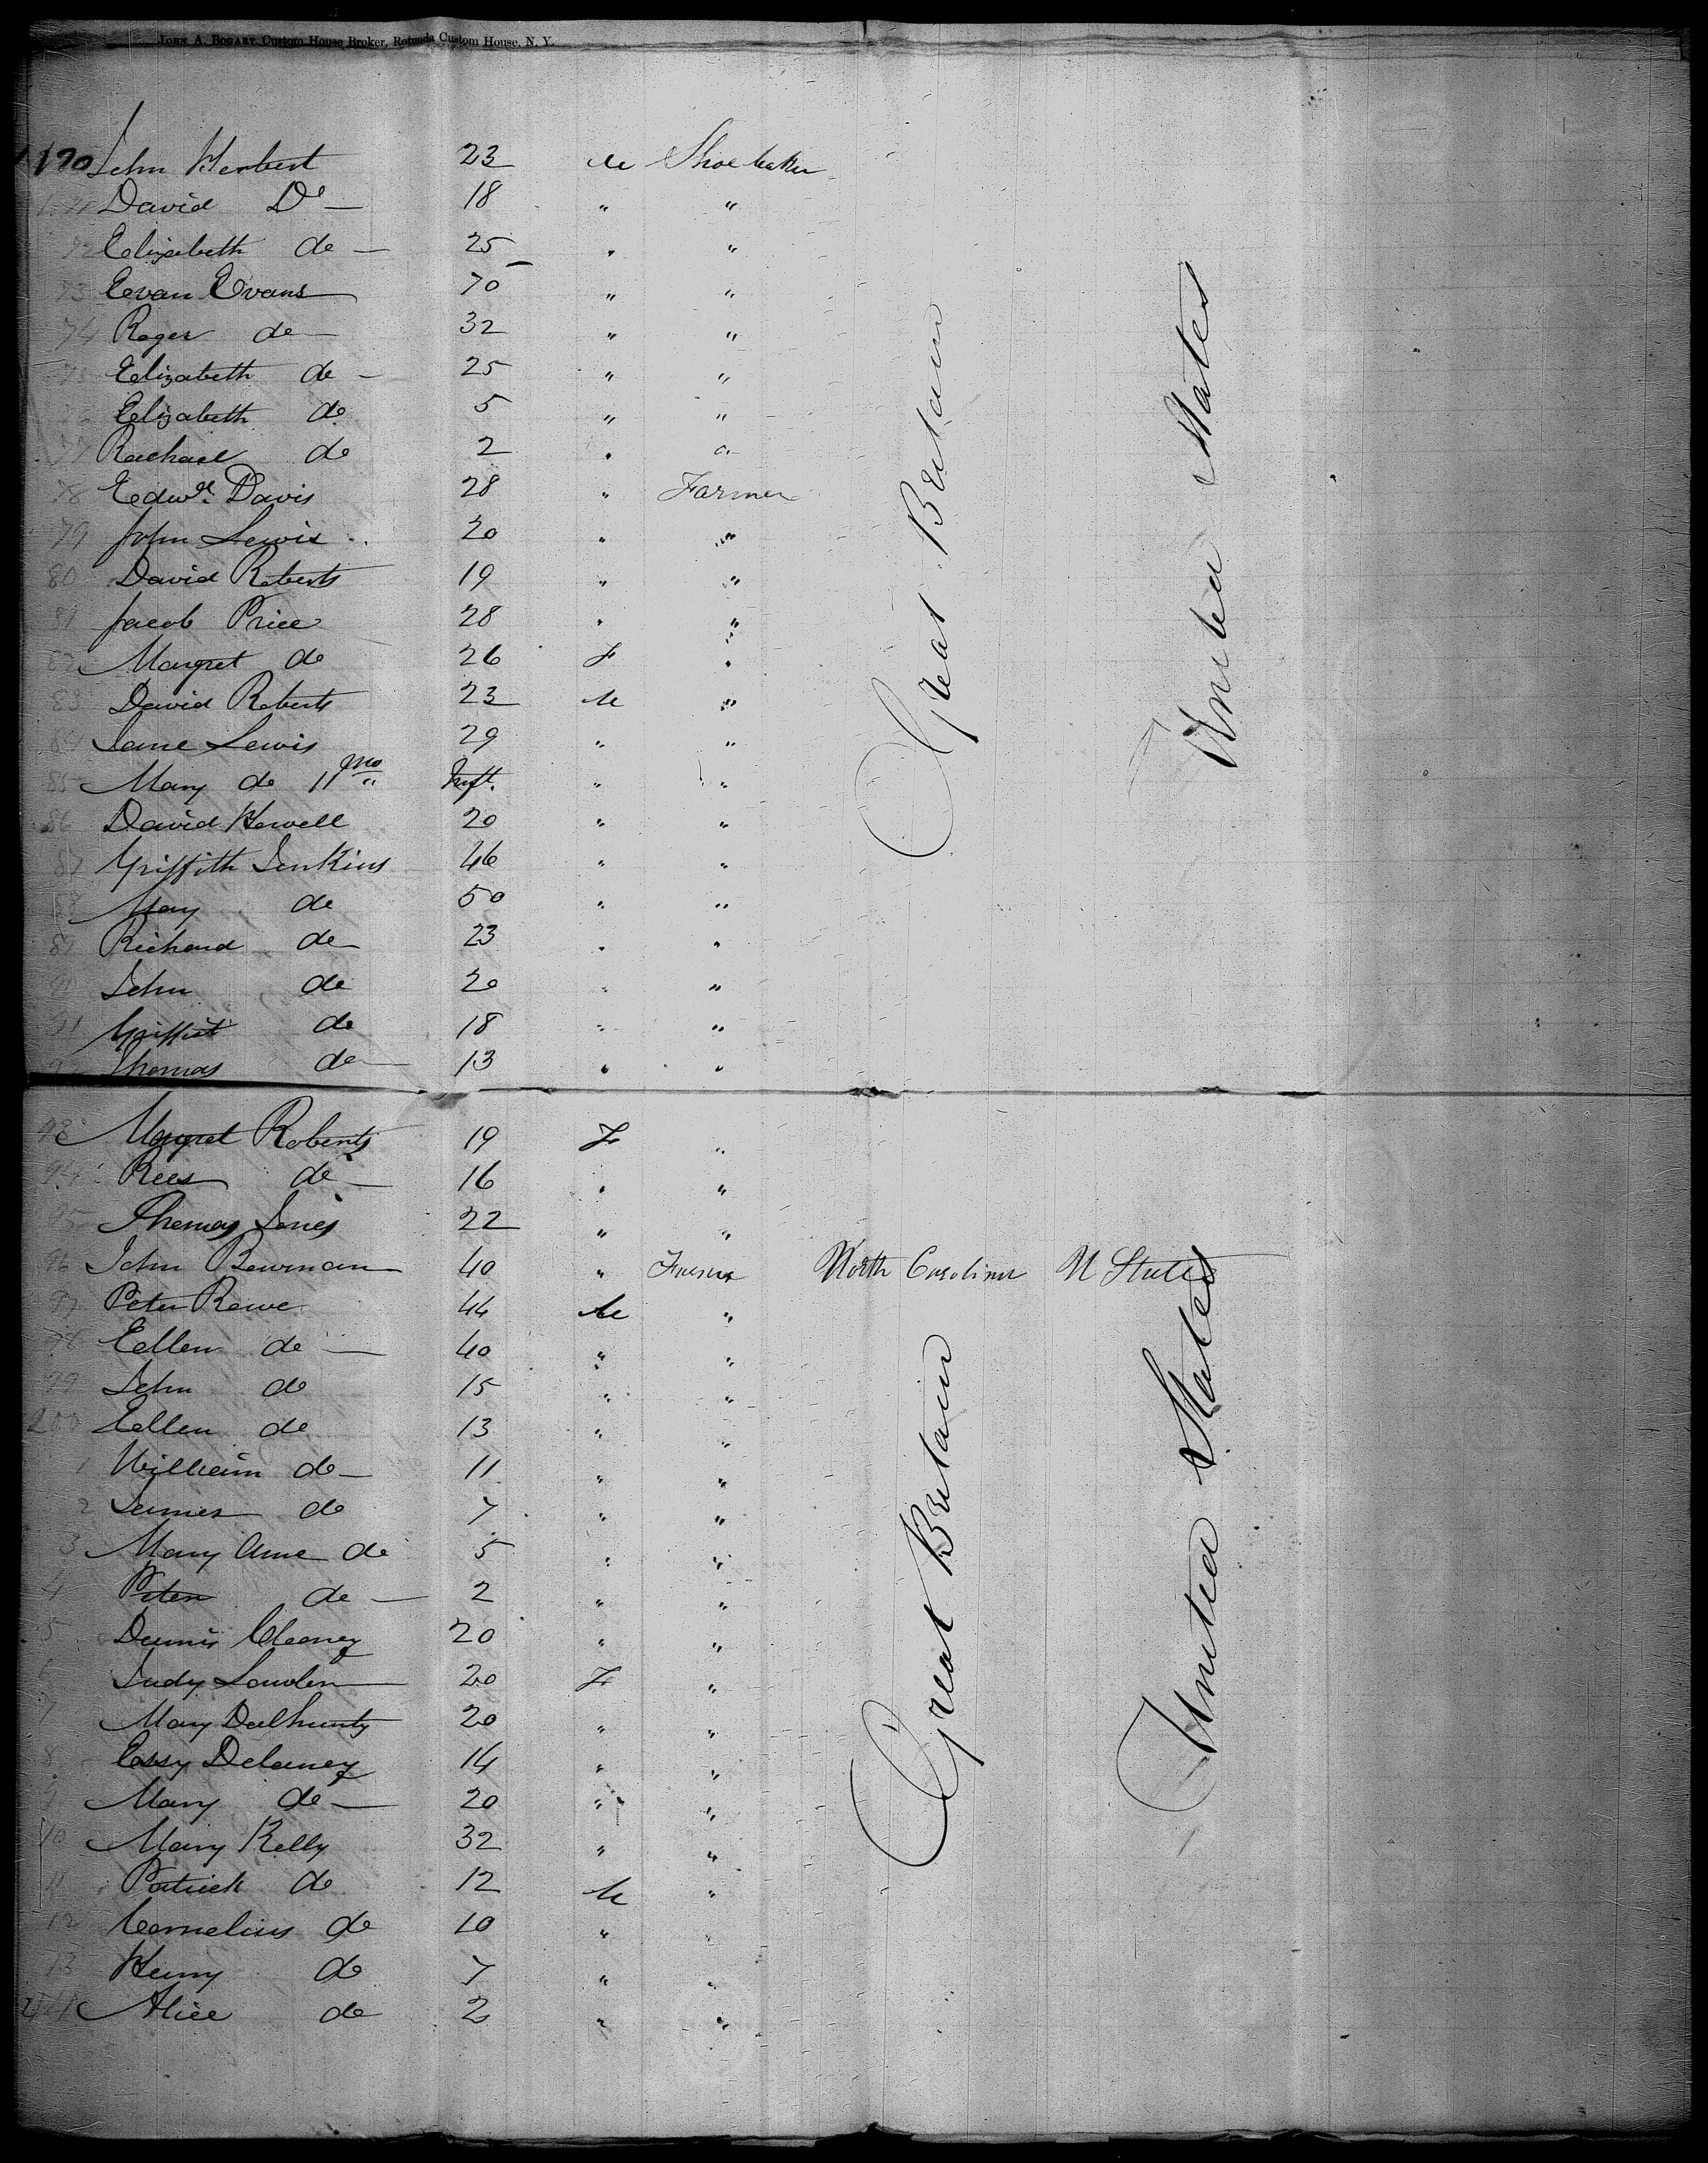 JOHN A. BOGART, Custom House Broker, Rotunda Custom House, N. Y.
170 John Herbert 23 M Shoe Maker
David Do — 18 " "
72 Elizabeth do — 25 " "
73 Evan Evans 70 " "
74 Roger do — 32 " "
75 Elizabeth do — 25 " "
Elizabeth do 5 " "
77 Rachael do 2 " "
78 Edwd. Davis 28 " Farmer
79 John Lewis 20 " "
80 David Roberts 19 " "
81 Jacob Price 28 " "
82 Margret do 26 F "
83 David Roberts 23 M "
84 Jane Lewis 29 " "
85 Mary do 11 mo Inft. " "
86 David Howell 20 " "
87 Griffith Jenkins 46 " "
88 Mary do 50 " "
89 Richard do 23 " "
90 John do 20 " "
91 Griffith do 18 " "
Thomas do 13 " "
Great Britain
United States
93 Margret Roberts 19 F "
94 Rees do — 16 " "
95 Thomas Jones 22 " "
96 John Bowman 40 " Farmer North Carolina U States
97 Peter Rowe 44 M "
98 Ellen do — 40 " "
99 John do 15 " "
200 Ellen do 13 " "
1 William do — 11 " "
2 James do 7 " "
3 Mary Anne do 5 " "
4 Peter do — 2 " "
5 Dennis Cleaney 20 " "
6 Judy 20 F "
7 Mary Dalhunty 20 " "
8 Essy Delaney 14 " "
9 Mary do — 20 " "
10 Mary Kelly 32 " "
11 Patrick do 12 M "
12 Cornelius do 10 " "
13 Henry do 7 " "
214 Alice do 2 " "
Great Britain
United States